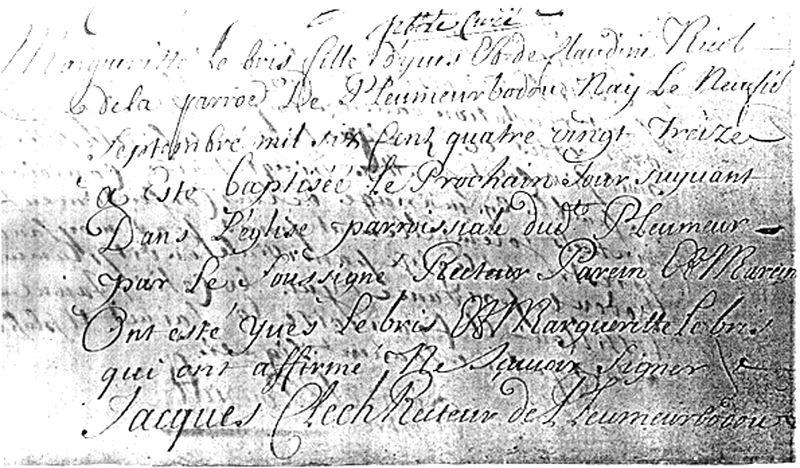 ptre Curé
Margueritte Le bris fille d'yues Et de Claudine Nicol
de la parroe de Pleumeurbodou Nay Le Neuf
septembre mil six Cent quatre vingt Treize
a esté baptisée le Prochain Jour suyuant
Dans L'église parroissiale dudt Pleumeur
par Le soussigné Recteur Parein Et Mareine
Ont esté yues le bris Et Margueritte le bris
qui ont affirmé Ne Sçauoir Signer
Jacques Clech Recteur de Pleumeurbodou